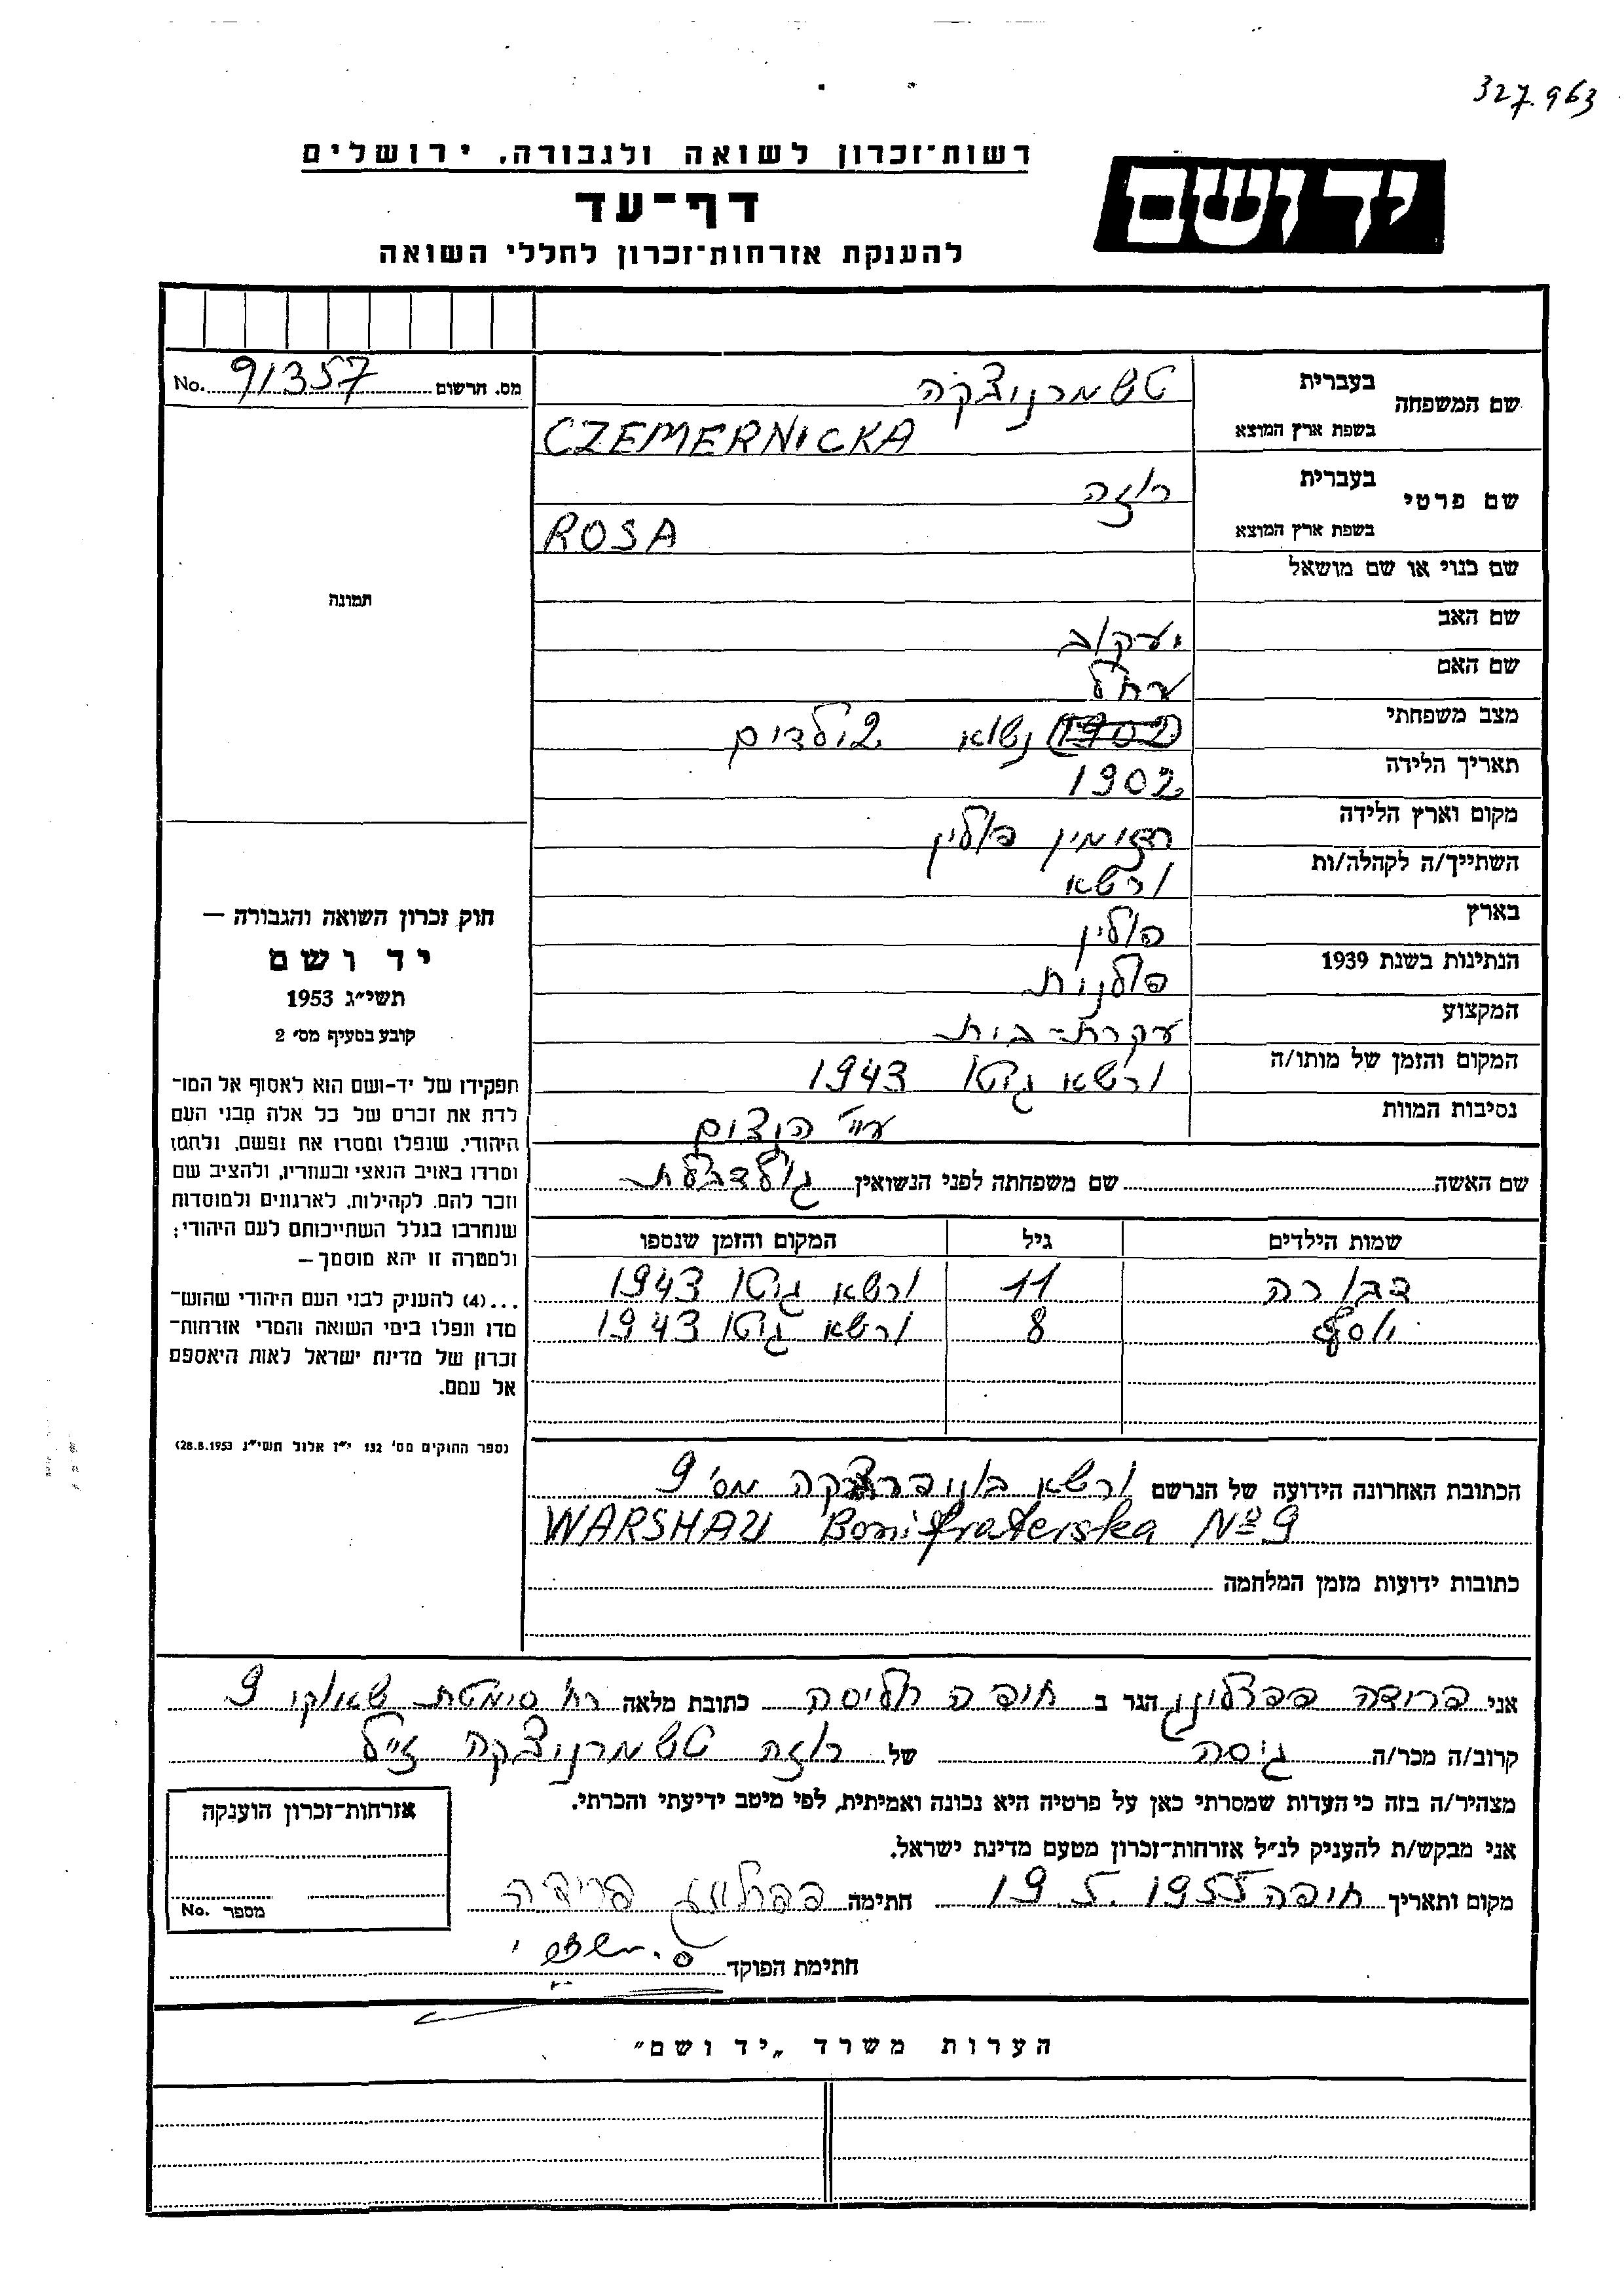 327.963
רשות־זכרון לשואה ולגבורה, ירושלים
יד ושם
דף-עד
להענקת אזרחות־זכרון לחללי השואה
מס. תרשום 91357 No.
שם המשפחה בעברית טשמרניצקה
בשפת ארץ המוצא CZEMERNICKA
שם פרטי בעברית רוזה
בשפת ארץ המוצא ROSA
שם כנוי או שם מושאל
שם האב יעקוב
שם האם רחל
מצב משפחתי נשוא 2 ילדים
תאריך הלידה 1902
מקום וארץ הלידה רדזימין פולין
השתייך/ה לקהלה/ות ורשא
בארץ פולין
הנתינות בשנת 1939 פולנית
המקצוע עקרת-בית
המקום והזמן של מותו/ה ורשא גיטו 1943
נסיבות המוות ע״י הנצים
שם האשה שם משפחתה לפני הנשואין
שמות הילדים גיל המקום והזמן שנספו
דבורה 11 ורשא גיטו 1943
יוסף 8 ורשא גיטו 1943
הכתובת האחרונה הידועה של הנרשם ורשא מס' 9
WARSHAU Bonifraterska № 9
כתובות ידועות מזמן המלחמה
תמונה
חוק זכרון השואה והגבורה —
יד ושם
תשי״ג 1953
קובע בסעיף מס׳ 2
תפקידו של יד-ושם הוא לאסוף אל המו־
לדת את זכרם של כל אלה מבני העם
היהודי, שנפלו ומסרו את נפשם, נלחמו
ומרדו באויב הנאצי ובעוזריו, ולהציב שם
וזכר להם, לקהילות, לארגונים ולמוסדות
שנחרבו בגלל השתייכותם לעם היהודי;
ולמטרה זו יהא מוסמך—
...(4) להעניק לבני העם היהודי שהוש־
מדו ונפלו בימי השואה והמרי אזרחות־
זכרון של מדינת ישראל לאות היאספם
אל עמם.
(ספר החוקים מס׳ 132 י״ז אלול תשי״ג 28.8.1953)
אני פרידה הגר ב חיפה חליסה כתובת מלאה רח' סימטת 9
קרוב/ה מכר/ה גיסה של רוזה טשמרניצקה ז״ל
מצהיר/ה בזה כי העדות שמסרתי כאן על פרטיה היא נכונה ואמיתית, לפי מיטב ידיעתי והכרתי.
אני מבקש/ת להעניק לנ״ל אזרחות־זכרון מטעם מדינת ישראל.
מקום ותאריך חיפה 19.5.1955 חתימה פרידה
חתימת הפוקד
אזרחות־זכרון הוענקה
מספר No.
הערות משרד „יד ושם״